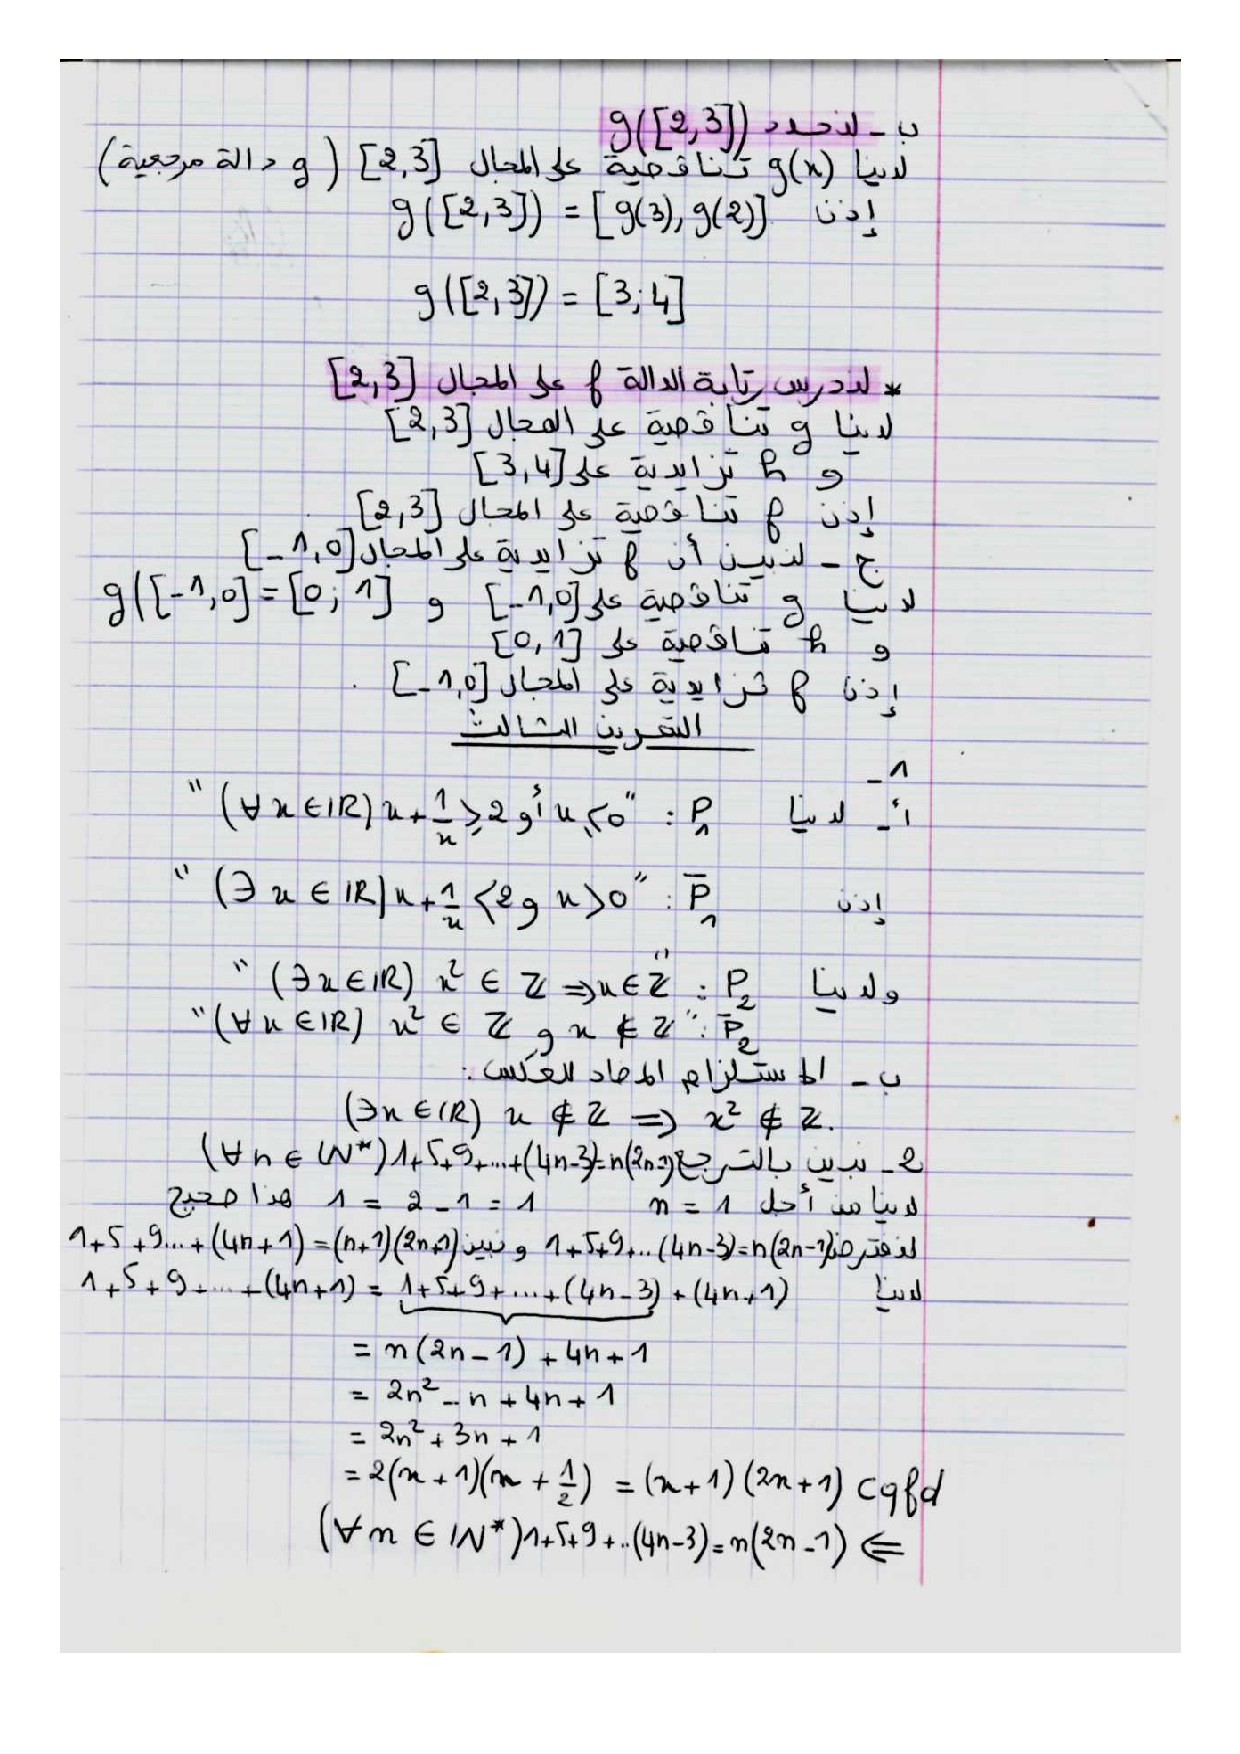 ب - لنحدد g([2,3])
لدينا g(x) تناقصية على المجال [2,3] (g دالة مرجعية)
إذن g([2,3]) = [g(3), g(2)]
g([2,3]) = [3;4]
* لندرس رتابة الدالة f على المجال [2,3]
لدينا g تناقصية على المجال [2,3]
و h تزايدية على [3,4]
إذن f تناقصية على المجال [2,3]
ج - لنبين أن f تزايدية على المجال [-1,0]
لدينا g تناقصية على [-1,0] و g([-1,0]=[0;1]
و h تناقصية على [0,1]
إذن f تزايدية على المجال [-1,0].
التمرين الثالث
1-
أ- لدينا P₁ : "(∀x∈IR) x+1/x ≥2 أو x≤0"
إذن P̄₁ : "(∃x∈IR) x+1/x <2 و x>0"
ولدينا P₂ : "(∃x∈IR) x² ∈ Z ⇒ x∈Z"
P̄₂ : "(∀x∈IR) x² ∈ Z و x ∉ Z"
ب - الاستلزام المضاد للعكس :
(∃x∈IR) x ∉ Z ⇒ x² ∉ Z.
2- نبين بالترجع (∀n∈IN*) 1+5+9+...+(4n-3)=n(2n-1)
لدينا من أجل n = 1 1 = 2-1 = 1 هذا صحيح
لنفترض 1+5+9+...(4n-3)=n(2n-1) و نبين 1+5+9...+(4n+1)=(n+1)(2n+1)
لدينا 1+5+9+...+(4n+1) = 1+5+9+...+(4n-3)+(4n+1)
= n(2n-1)+4n+1
= 2n²-n+4n+1
= 2n²+3n+1
= 2(n+1)(n+1/2) = (n+1)(2n+1) cqfd
⇐ (∀n∈IN*) 1+5+9+..(4n-3)=n(2n-1)